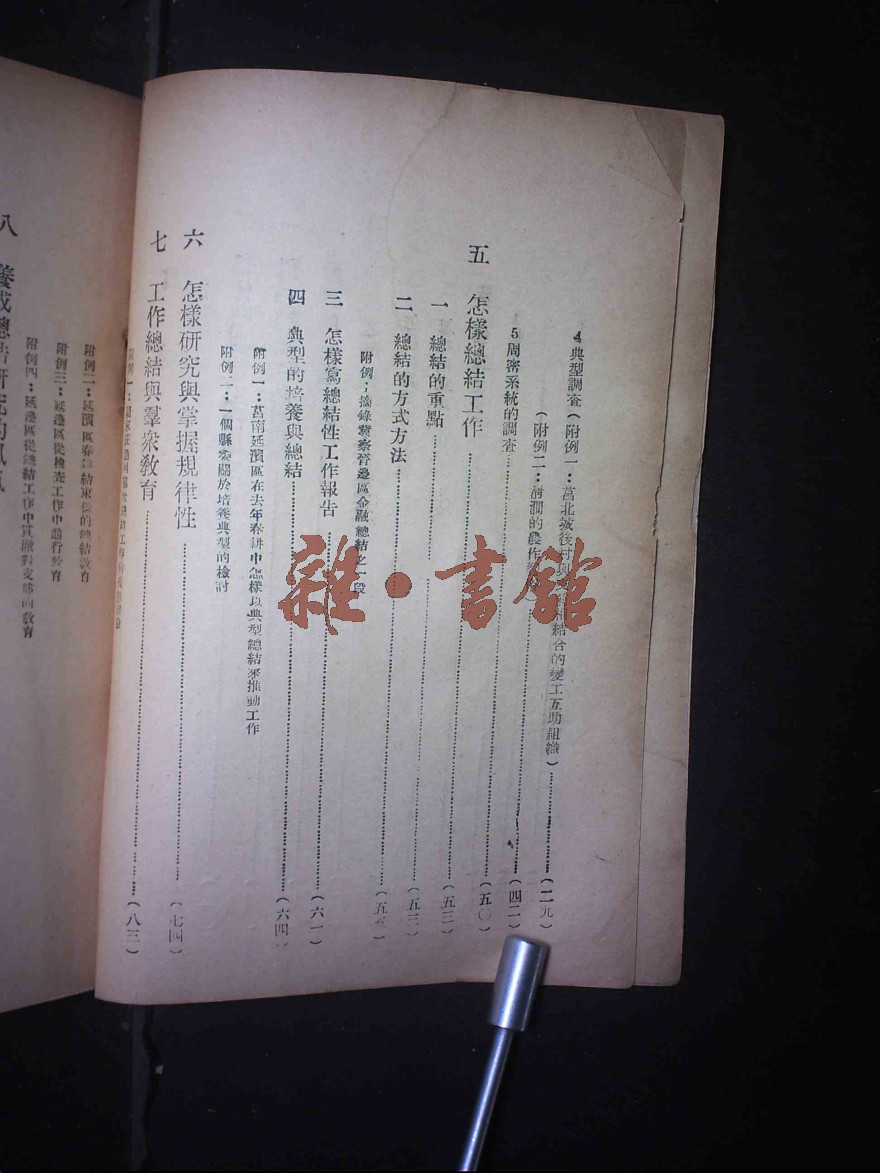 4 典型調查(附例一：莒北城後村
結合的變工互助組織)……(二九)
(附例二： 的農作
5 周密系統的調查……(四二)
五 怎樣總結工作……(五〇)
一 總結的重點……(五三)
二 總結的方式方法……(五三)
附例：摘錄冀察晉邊區金融總結之一段……(五五)
三 怎樣寫總結性工作報告……(六一)
四 典型的培養與總結……(六四)
附例一：莒南延濱區在去年春耕中怎樣以典型總結來推動工作
附例二：一個縣委關於培養典型的檢討
六 怎樣研究與掌握規律性……(七四)
七 工作總結與羣衆教育……(八三)
附例一：
附例二：延濱區春耕結束後的總結教育
附例三：延邊區從檢查工作中進行教育
附例四：延邊區從總結工作中貫徹對支部的教育
八 養成總結研究的風氣
雜·書館